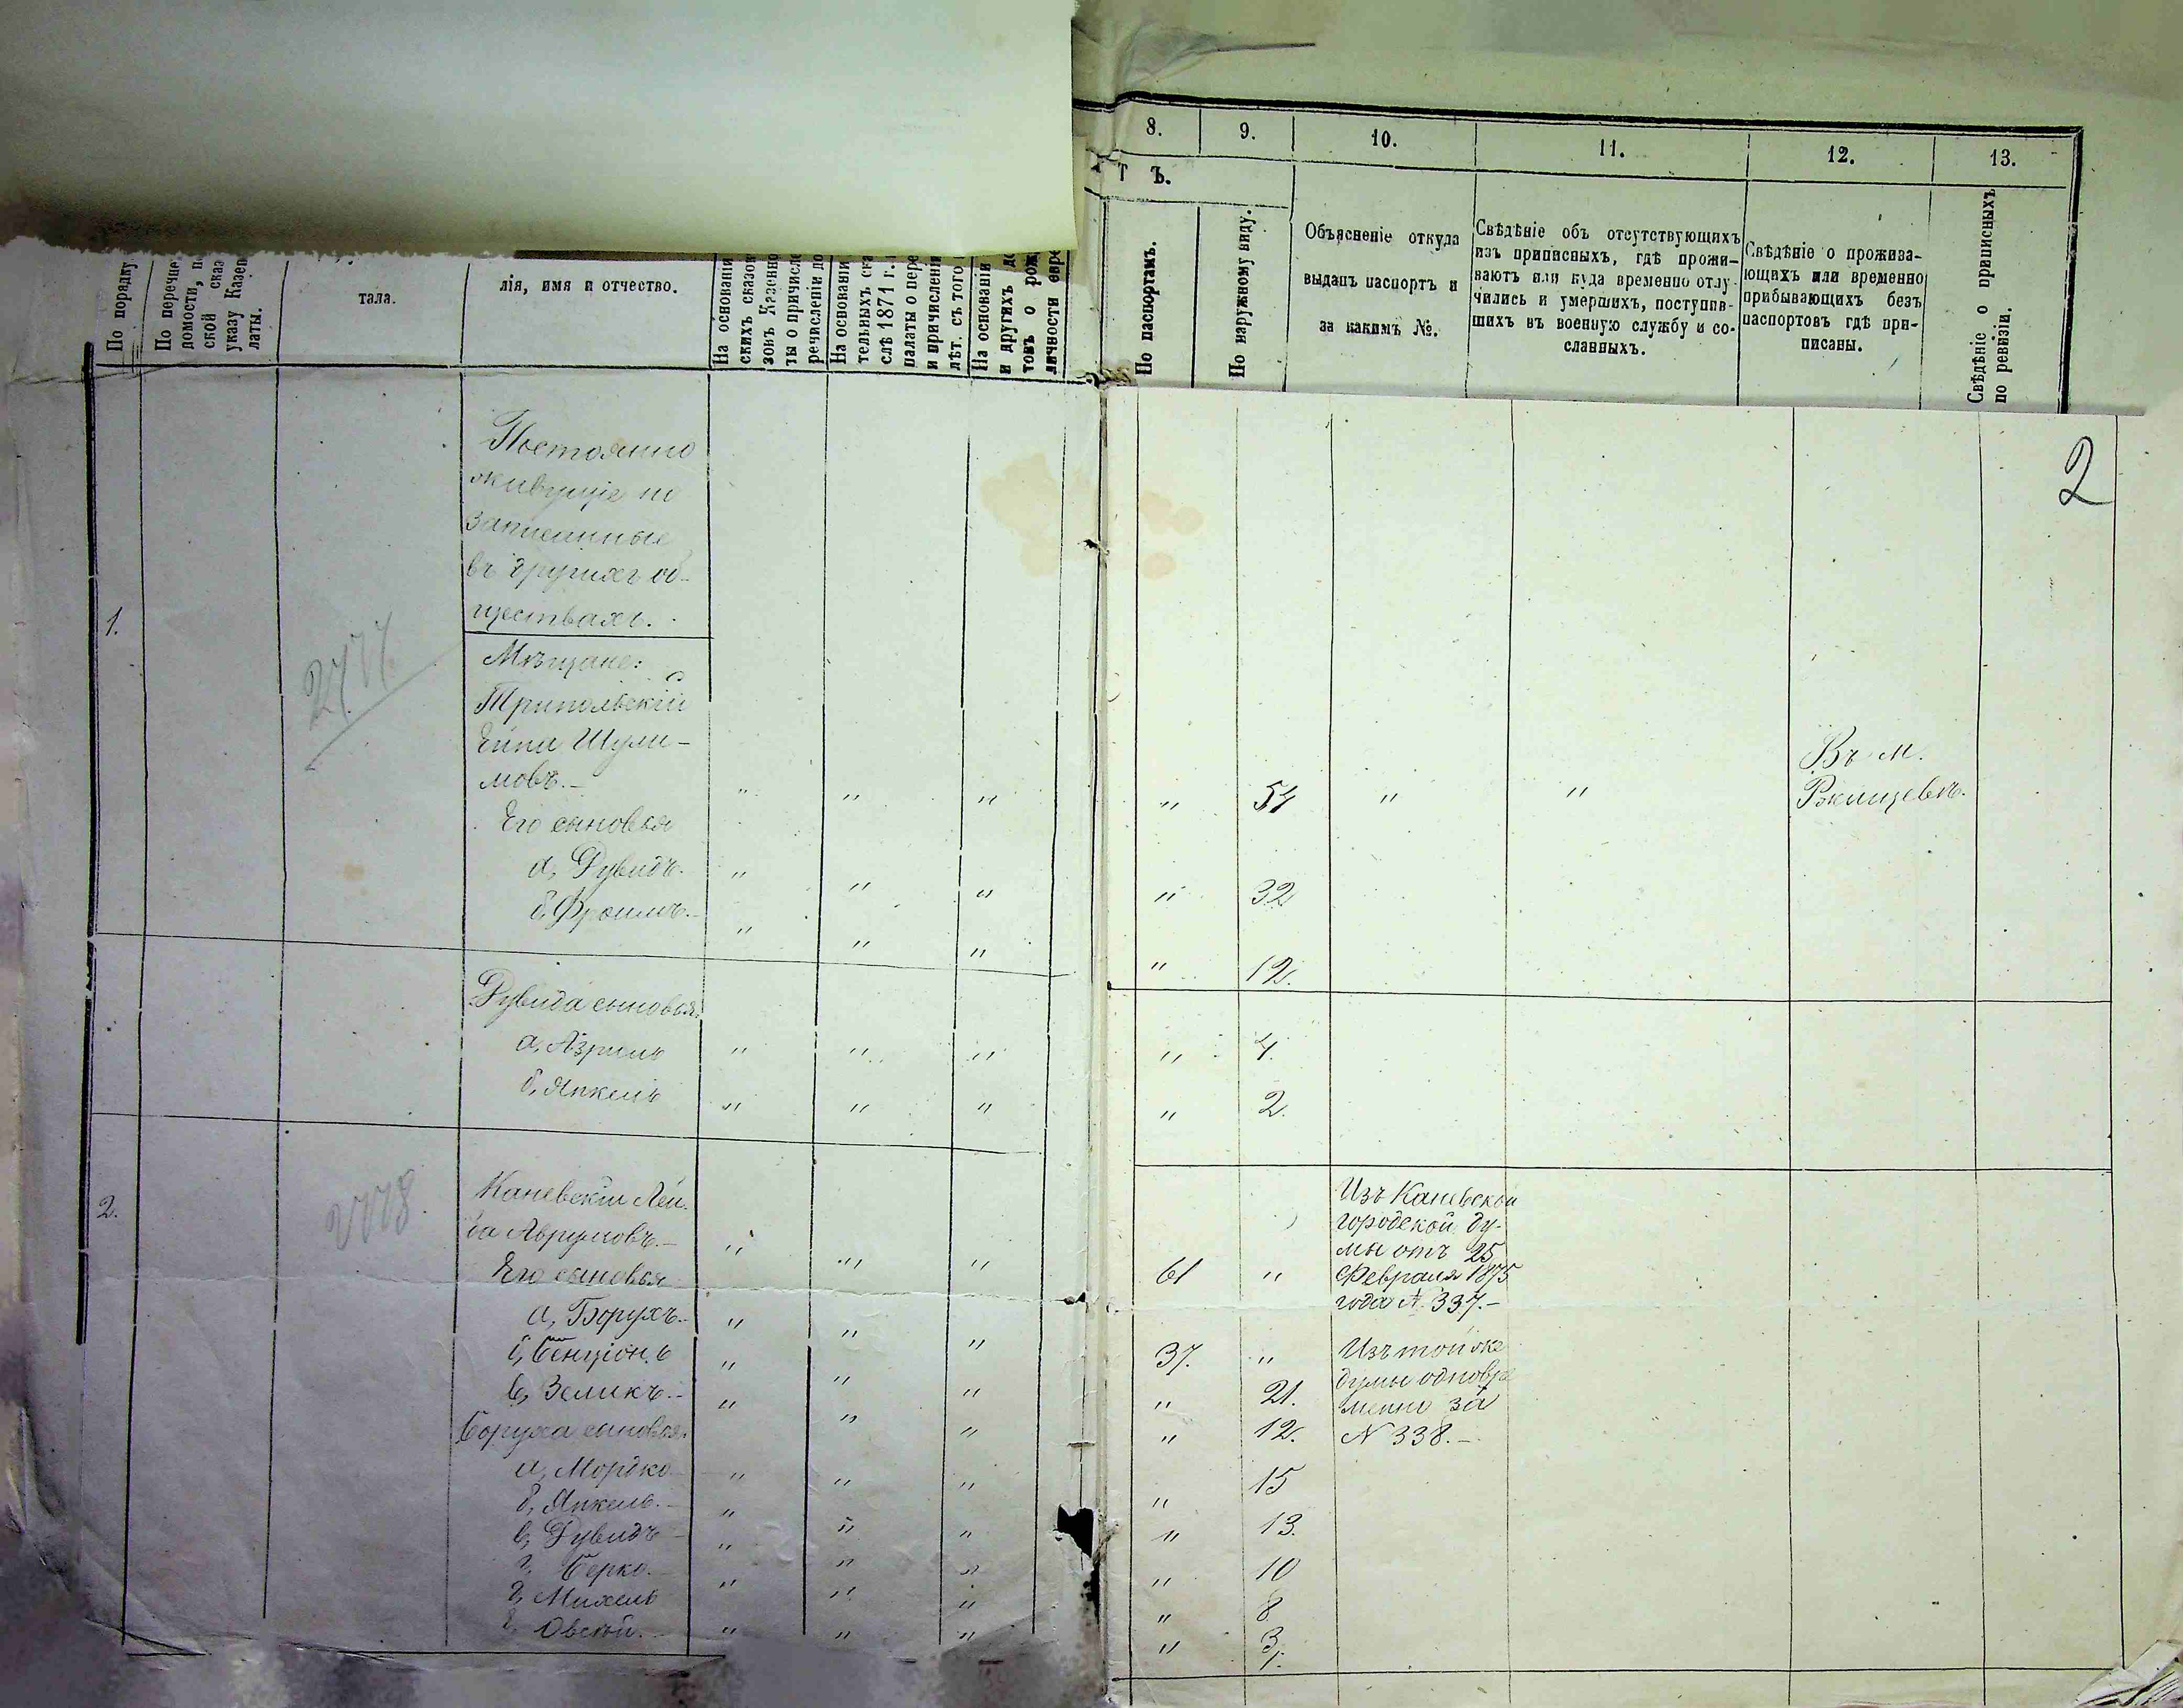 8. 9. 10. 11. 12. 13.
Т Ъ.
По порядку
По перечне
домости, п
ской сказ
указу Казен
латы.
тала.
лія, имя и отчество.
На основаніи
скихъ сказок
зокъ Казенно
ты о причисле
речисленіи до
На основаніи
тельныхъ ска
слѣ 1871 г.
палаты о пере
и причислени
лѣт. съ того
На основаніи
и другихъ до
товъ о рож
личности евре
По паспортамъ.
По наружному виду.
Объясненіе откуда
выданъ паспортъ и
за какимъ №.
Свѣдѣніе объ отсутствующихъ
изъ приписныхъ, гдѣ прожи-
ваютъ или куда временно отлу-
чились и умершихъ, поступив-
шихъ въ военную службу и со-
сланныхъ.
Свѣдѣніе о прожива-
ющихъ или временно
прибывающихъ безъ
паспортовъ гдѣ при-
писаны.
Свѣдѣніе о приписныхъ
по ревизіи.
2
Постоянно
живущіе но
записанные
въ другихъ об-
ществахъ.
1.
Мѣщане:
Трипольскій
Ейна Шули-
мовъ.- " " " " 54 " " Въ м.
Ржищевѣ.
Его сыновья
а, Рувидъ. " " " " 32
б, Фроимъ.- " " " " 12.
Рувида сыновья:
а, Азріиль " " " " 4.
б, Янкель " " " " 2.
2. 2778.
Каневскій Лей-
ба Аврумовъ.- " " " 61 "
Изъ Каневской
городской ду-
мы отъ 25
Февраля 1875
года № 337.-
Его сыновья
а, Борухъ.- " " " 37. "
Изъ той же
думы одновре
менно за
№ 338.-
б, Бенціонъ " " " " 21.
в, Зеликъ.- " " " " 12.
Боруха сыновья:
а, Мордко " " " 15
б, Янкель.- " " " " 13.
в, Рувидъ " " " " 10
г, Берко.- " " " " 8
д, Михель " " " " 3/.
е, Овсей.- " " "